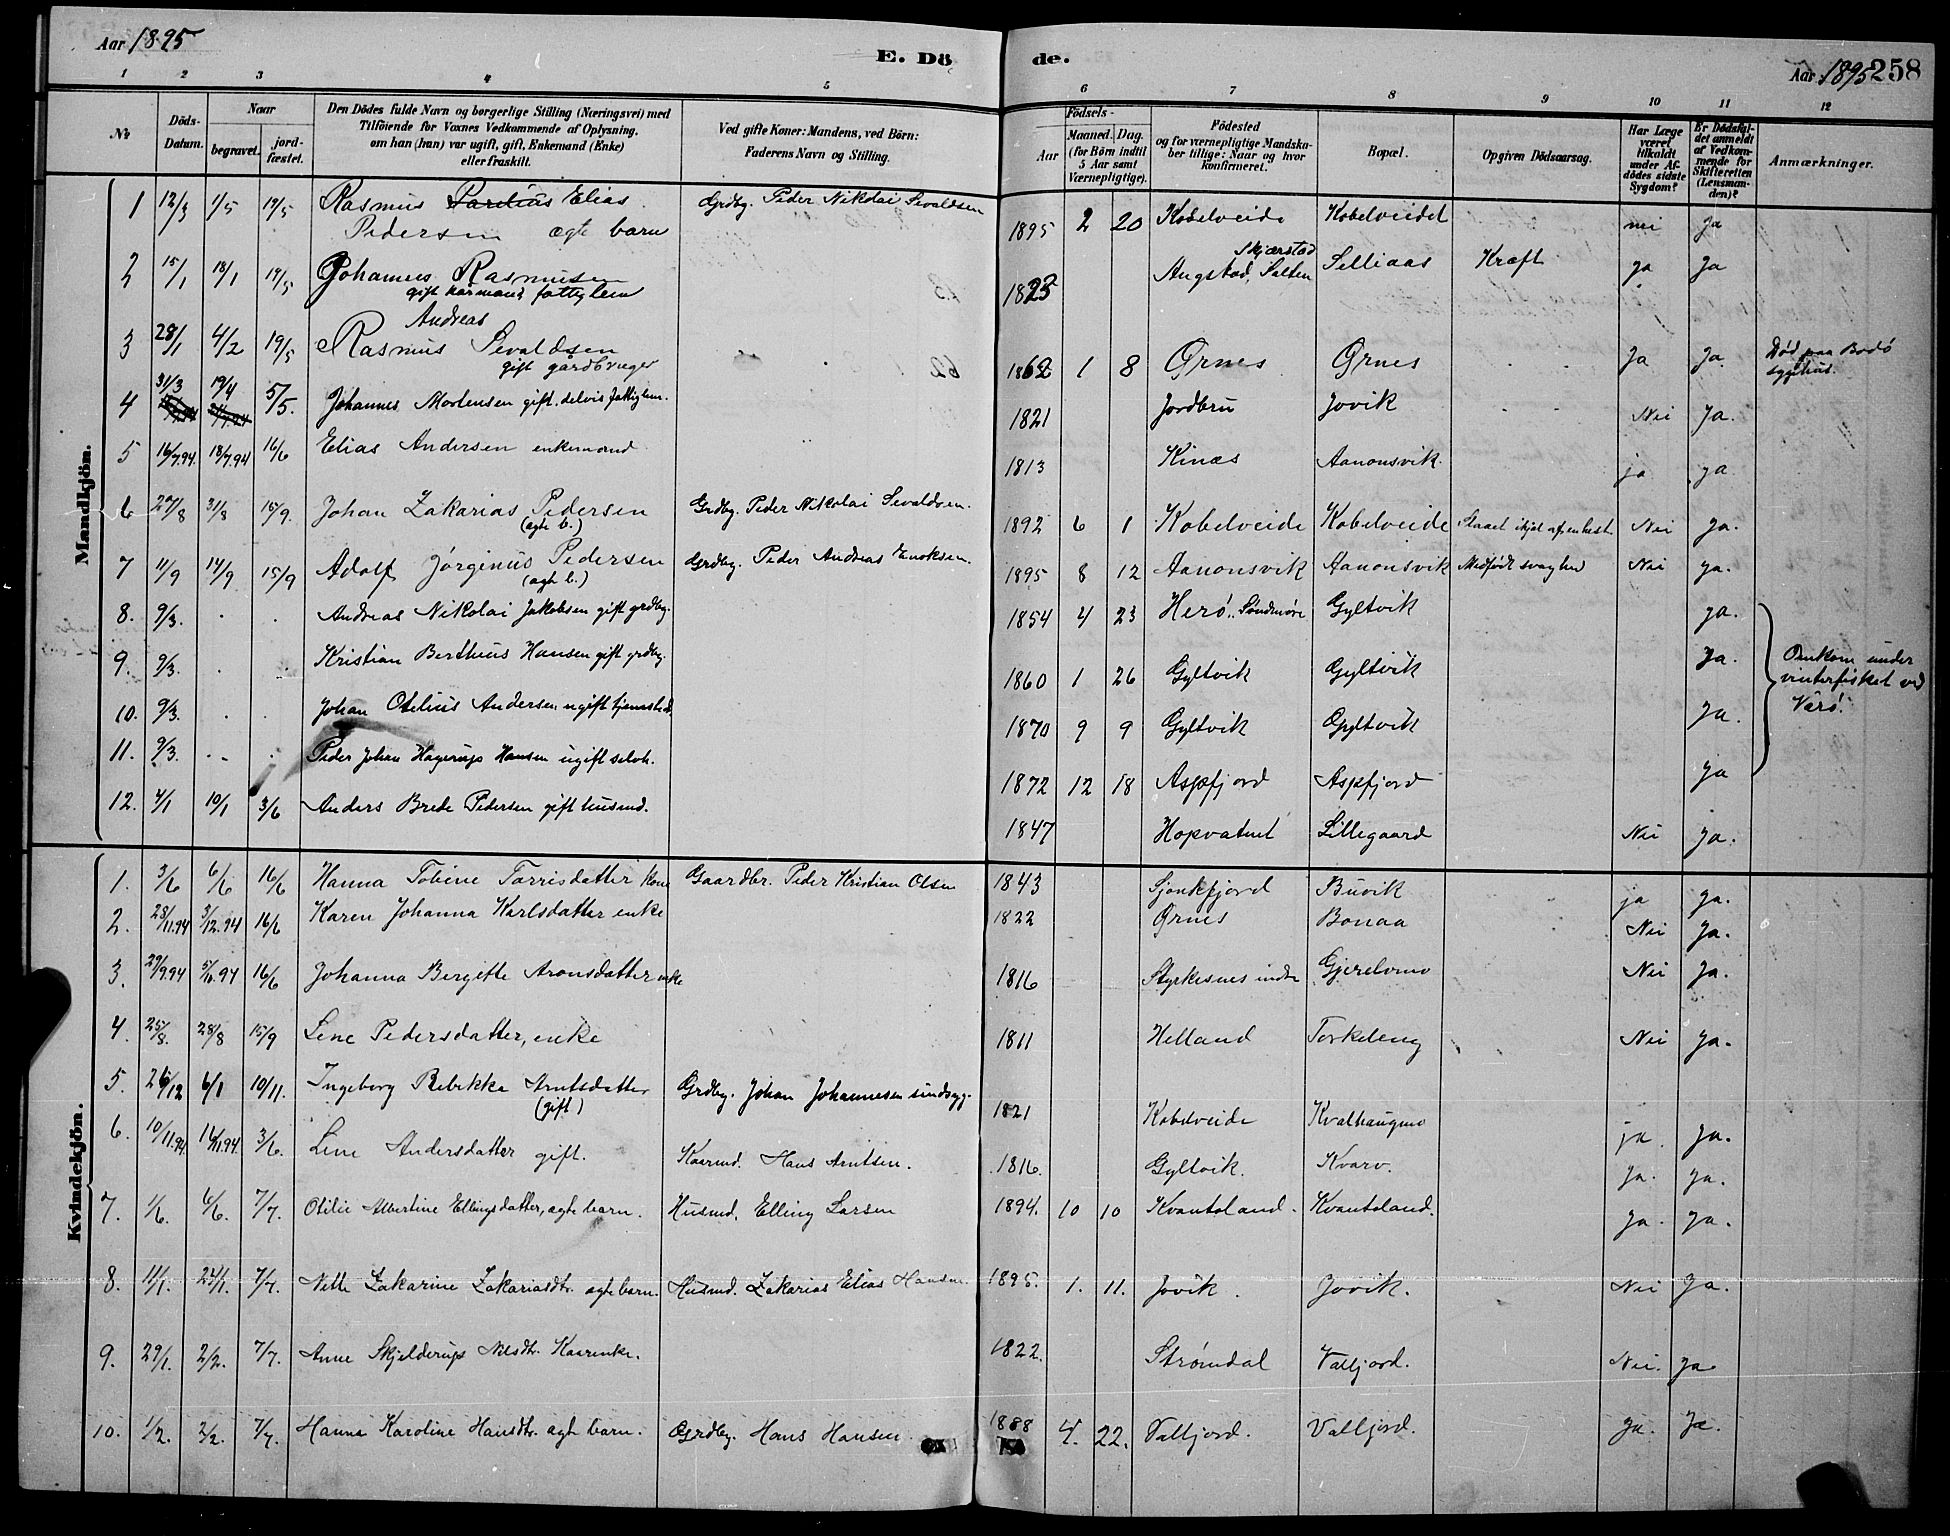 Aar 1895
E. Dö de.
Aar 1895 258
1 2 3 4 5 6 7 8 9 10 11 12
No
Döds-Datum.
Naar
begravet.
jord-fæstet.
Den Dödes fulde Navn og borgerlige Stilling (Næringsvei) med
Tilföiende for Voxnes Vedkommende af Oplysning,
om han (hun) var ugift, gift, Enkemand (Enke)
eller fraskilt.
Ved gifte Koner: Mandens, ved Börn:
Faderens Navn og Stilling.
Födsels-
Aar
Maaned. Dag.
(for Börn indtil
5 Aar samt
Værnepligtige).
Födested
og for værnepligtige Mandska-
ber tillige: Naar og hvor
konfirmeret.
Bopæl.
Opgiven Dödsaarsag.
Har Læge
været
tilkaldt
under Af-
dödes sidste
Sygdom?
Er Dödsfal-
det anmeldt
af Vedkom-
mende for
Skifteretten
(Lensman-
den)?
Anmærkninger.
Mandkjön.
1 12/3 1/5 19/5 Rasmus Parelius Elias Grdbg. Peder Nikolai Sevaldsen 1895 2 20 Kobelveide Kobelveidet nei Ja
Pedersen ægte barn
2 15/1 18/1 19/5 Johannes Rasmusen 1823 Skjærstad
Angstad, Salten Selliaas Kræft Ja Ja
gift kaarmand fattiglem
Andreas
3 28/1 4/2 19/5 Rasmus Sevaldsen 1862 1 8 Ørnes Ørnes Ja Ja. Død paa Bodö
gift gårdbruger sygehus.
4 31/3 19/4 5/5. Johannes Mortensen gift, delvis fattiglem. 1821 Jordbru Jovik Nei Ja.
5 16/7.94. 18/7.94 16/6 Elias Andersen enkemand 1813 Kinæs Aanonsvik. ja ja
6 29/8 31/8 15/9. Johan Zakarias Pedersen Grdbg. Peder Nikolai Sevaldsen. 1892 6 1 Kobelveide Kobelveide Slaaet ihjel af en hest Nei Ja.
(ægte b.)
7 11/9 14/9 15/9 Adolf Jørginus Pedersen Grdbg. Peder Andreas Enoksen. 1895 8 12 Aanonsvik Aanonsvik Medfødt svaghed Nei ja.
(ægte b.)
8. 9/3. . . Andreas Nikolai Jakobsen gift grdbg. 1854 4 23 Herø, Søndmøre Gyltvik ja.
9. 9/3. . . Kristian Berthius Hansen gift grdbg. 1860 1 26 Gyltvik Gyltvik Ja. Omkom under
vinterfisket ved
Værø.
10. 9/3. . . Johan Otelius Andersen ugift tjenestedr. 1870 9 9 Gyltvik Gyltvik Ja.
11. 9/3. . . Peder Johan Hagerup Hansen ugift selvh. 1872 12 18 Aspfjord Aspfjord ja
12. 4/1 10/1 3/6 Anders Brede Pedersen gift husmd. 1847 Hopvatnet Lillegaard Nei ja.
Kvindekjön.
1. 3/6 6/6 16/6 Hanna Tobine Torrisdatter kone Gaardbr. Peder Kristian Olsen 1843 Sjonkfjord Buvik ja ja.
2. 28/11.94 3/12.94 16/6 Karen Johanna Karlsdatter enke 1822 Ørnes Bonaa Nei Ja.
3. 29/9.94 5/10.94 16/6 Johanna Bergitte Aronsdatter enke 1816 Styrkesnes indre Gjerelvmo Nei Ja.
4. 25/8. 28/8 15/9 Lene Pedersdatter, enke 1811 Helland Torkeleng Nei Ja.
5. 26/12 6/1 10/11. Ingeborg Rebekke Arntsdatter Grdbg. Johan Johannesen sindssyg. 1821 Kobelveide Kvalhaugmo ja. Ja.
(gift)
6. 10/11.94. 16/11.94. 3/6. Lene Andersdatter gift. Kaarmd. Hans Arntsen. 1816. Gyltvik. Kvarv. Ja. Ja.
7. 1/6. 6/6. 7/7. Otilie Albertine Ellingsdatter, ægte barn. Husmd. Elling Larsen 1894. 10 10 Kvantoland. Kvantoland. Ja. Ja.
8. 11/1. 24/1. 7/7. Nette Zakarine Zakariasdtr. ægte barn. Husmd. Zakarias Elias Hansen. 1895. 1. 11. Jovik. Jovik. Nei Ja.
9. 29/1. 2/2. 7/7. Anne Skjelderup Nilsdtr. Kaarenke. 1822. Strømdal Valljord. Nei. Ja
10. 1/2. 2/2. 7/7. Hanna Karoline Hansdtr. ægte barn. Grdbg. Hans Hansen. 1888 4. 22. Valljord. Valljord. Ja. Ja.